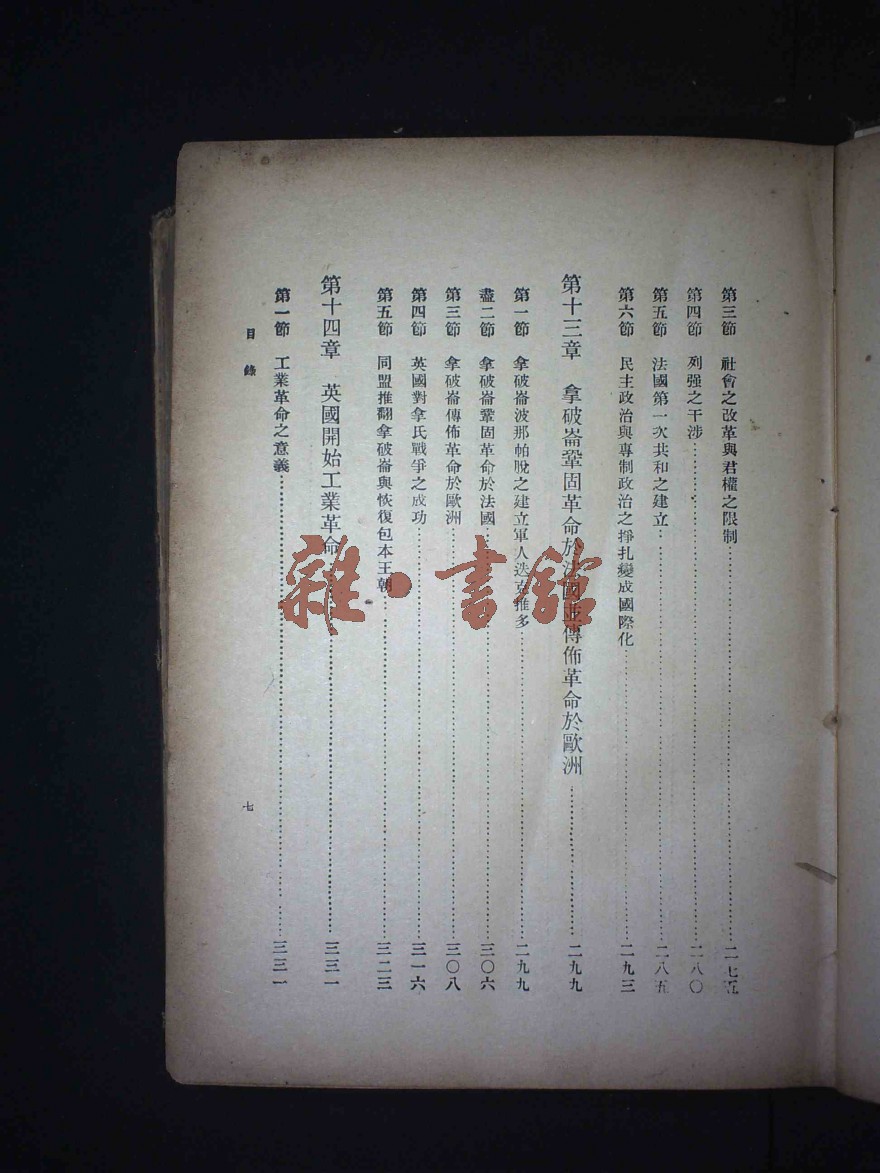 第三節　社會之改革與君權之限制……二七五
第四節　列强之干涉……二八〇
第五節　法國第一次共和之建立……二八五
第六節　民主政治與專制政治之掙扎變成國際化……二九三
第十三章　拿破崙鞏固革命於法國並傳佈革命於歐洲……二九九
第一節　拿破崙波那帕脫之建立軍人迭克推多……二九九
盡二節　拿破崙鞏固革命於法國……三〇六
第三節　拿破崙傳佈革命於歐洲……三〇八
第四節　英國對拿氏戰爭之成功……三一六
第五節　同盟推翻拿破崙與恢復包本王朝……三二三
第十四章　英國開始工業革命……三三一
第一節　工業革命之意義……三三一
目錄
七
雜·書館